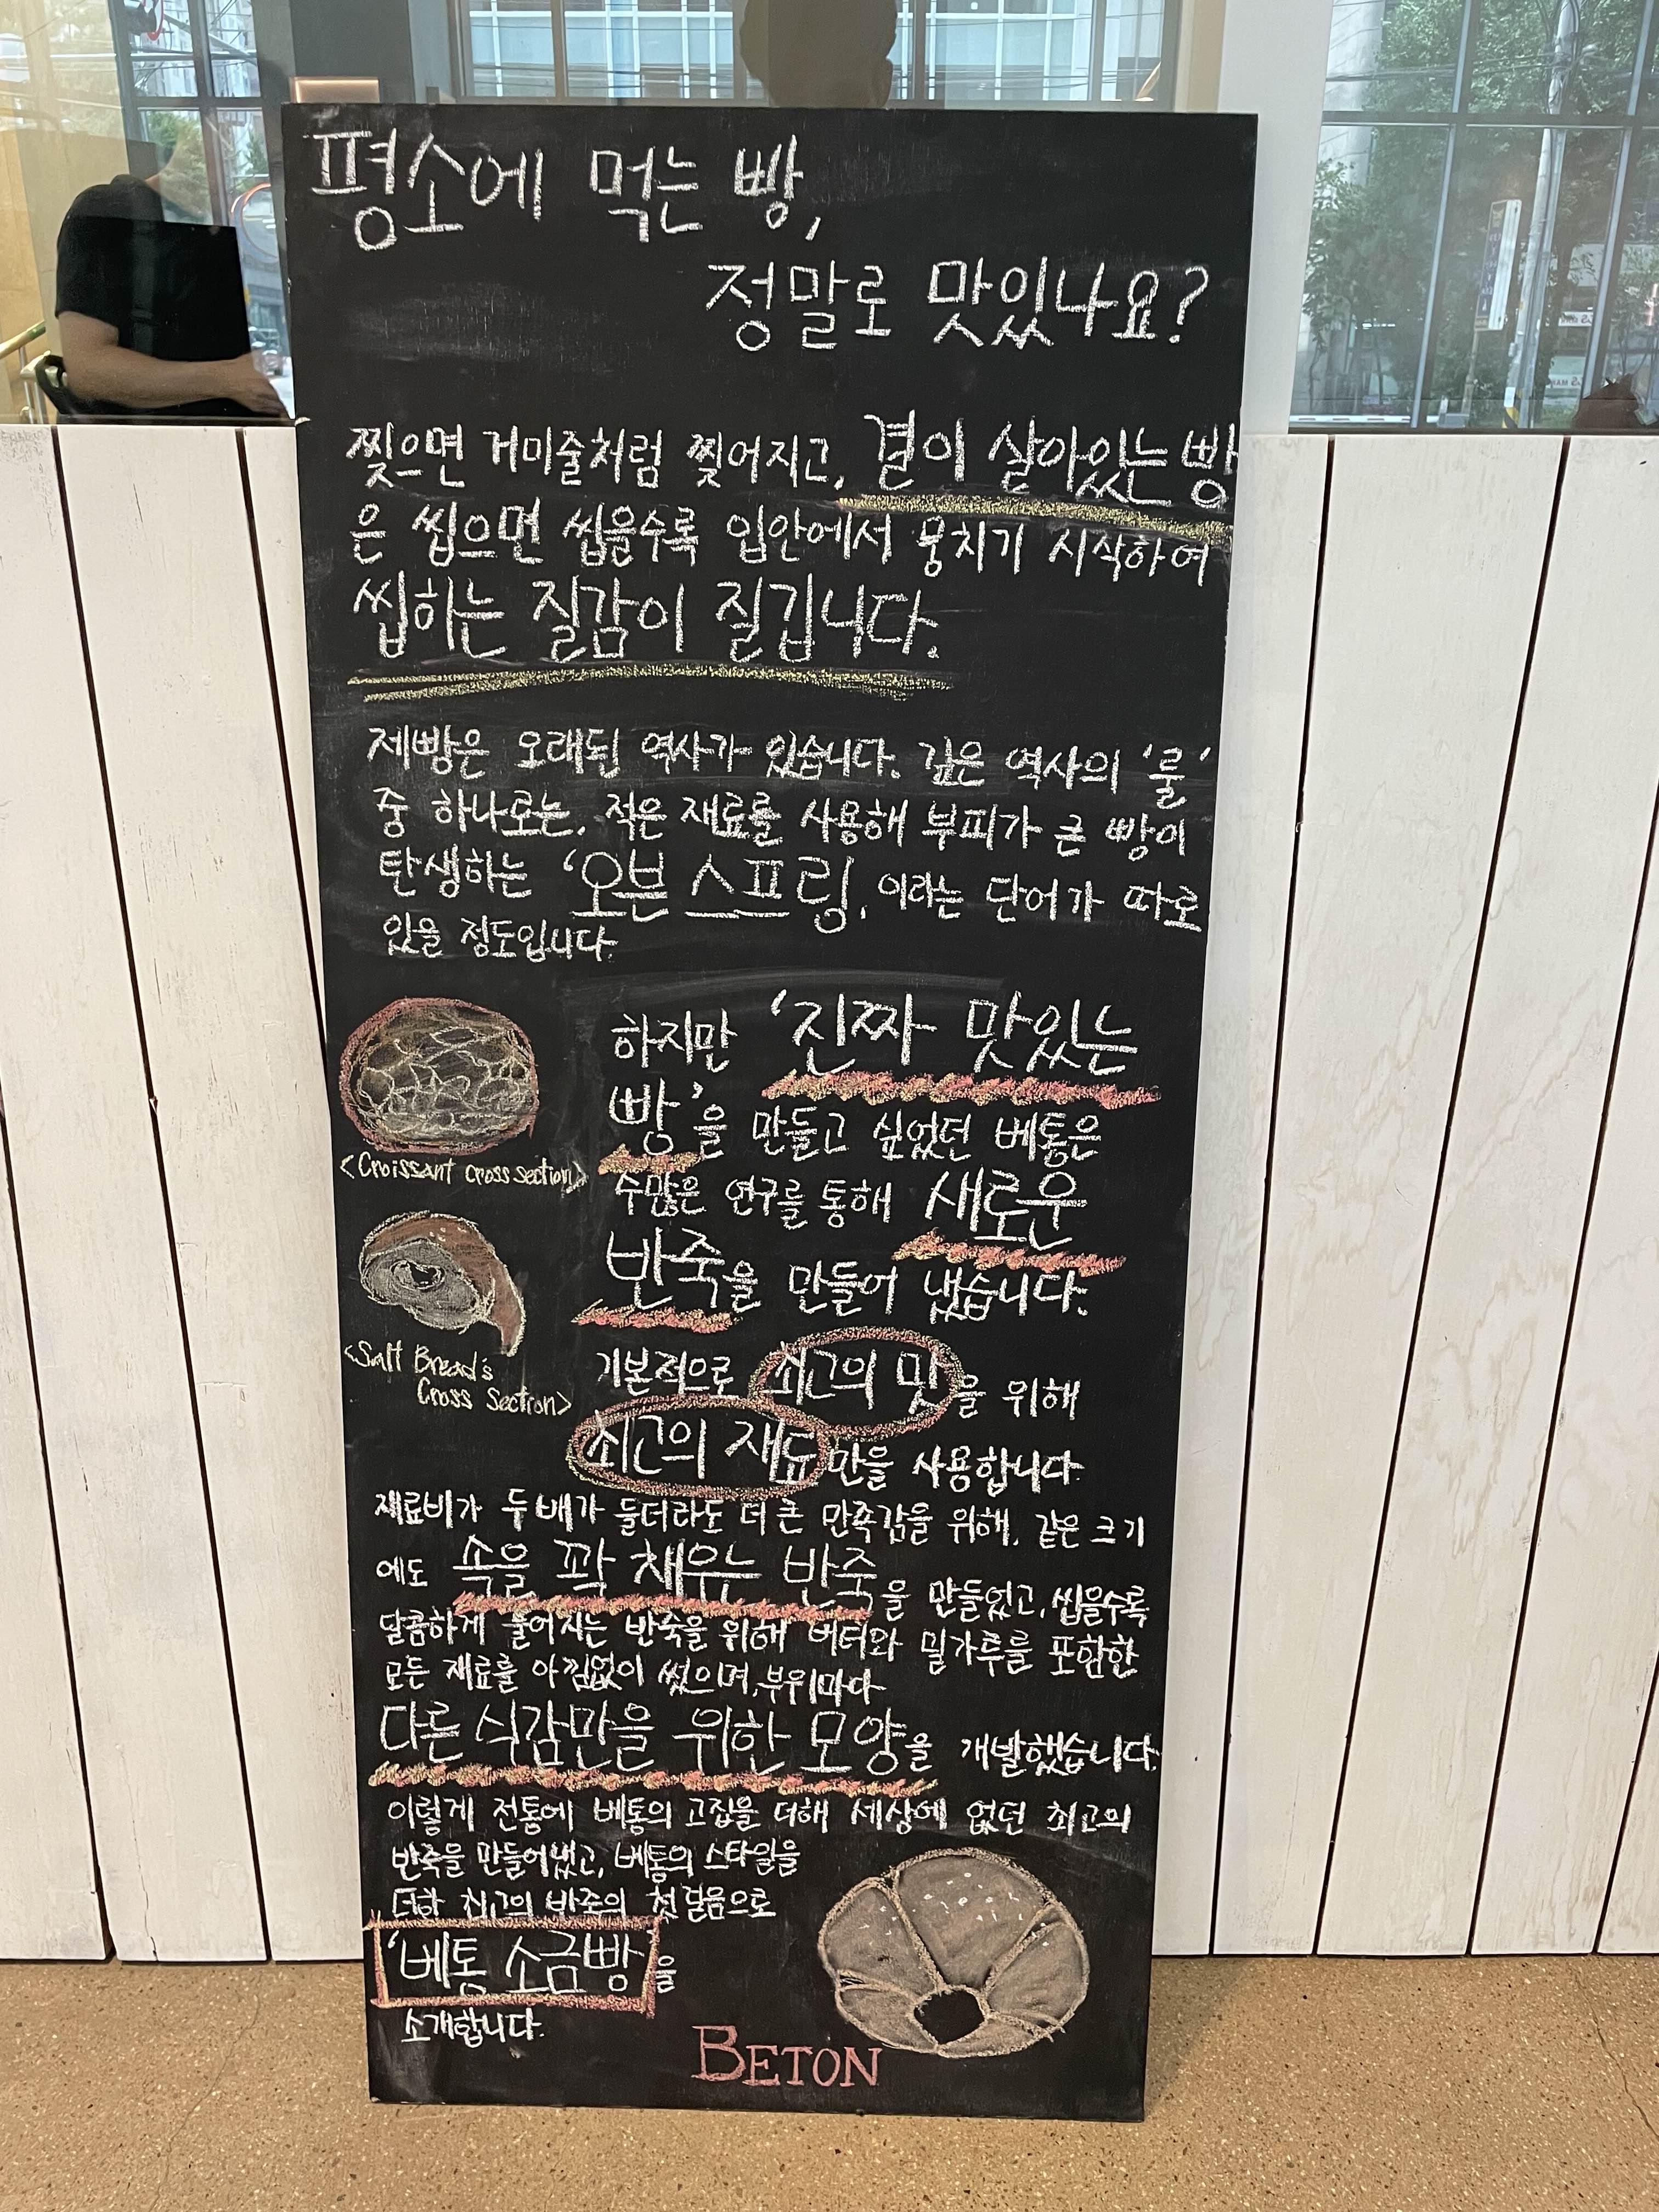 평소에 먹는 빵,
정말로 맛있나요?
찢으면 거미줄처럼 찢어지고, 결이 살아있는 빵
은 씹으면 씹을수록 입안에서 뭉치기 시작하여
씹하는 질감이 질깁니다.
제빵은 오래된 역사가 있습니다. 깊은 역사의 '룰'
중 하나로는, 적은 재료를 사용해 부피가 큰 빵이
탄생하는 '오븐 스프링, 이라는 단어가 따로
있을 정도입니다.
하지만 '진짜 맛있는
빵'을 만들고 싶었던 베통은
수많은 연구를 통해 새로운
반죽을 만들어 냈습니다.
<Croissant cross section>
<Salt Bread's
Cross Section>
기본적으로 최고의 맛을 위해
최고의 재료만을 사용합니다
재료비가 두배가 들더라도 더 큰 만족감을 위해, 같은 크기
에도 속을 꽉 채우는 반죽을 만들었고, 씹을수록
달콤하게 풀어지는 반죽을 위해 버터와 밀가루를 포함한
모든 재료를 아낌없이 썼으며, 부위마다
다른 식감만을 위한 모양을 개발했습니다.
이렇게 전통에 베통의 고집을 더해 세상에 없던 최고의
반죽을 만들어냈고, 베통의 스타일을
더한 최고의 반죽의 첫걸음으로
'베통 소금빵'을
소개합니다.
BETON